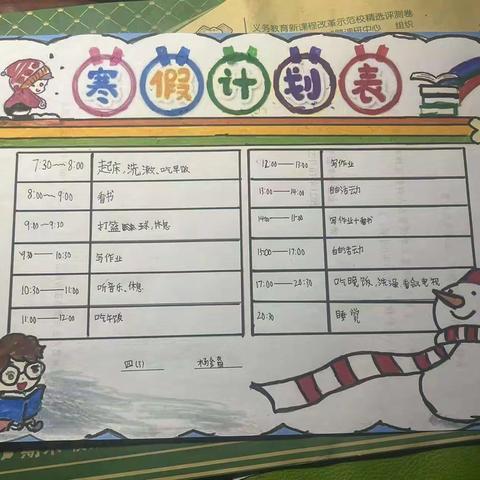 义务教育新课程改革示范校精选评测卷
组织
寒假计划表
7:30—8:00 起床,洗漱、吃早饭
8:00—9:00 看书
9:00—9:30 打篮球,休息
9:30—10:30 写作业
10:30—11:00 听音乐、休息
11:00—12:00 吃午饭
12:00—13:00 写作业
13:00—14:00 自由活动
14:00—15:00 写作业+看书
15:00—17:00 自由活动
17:00—20:30 吃晚饭,洗澡,看电视
20:30 睡觉
四(1)